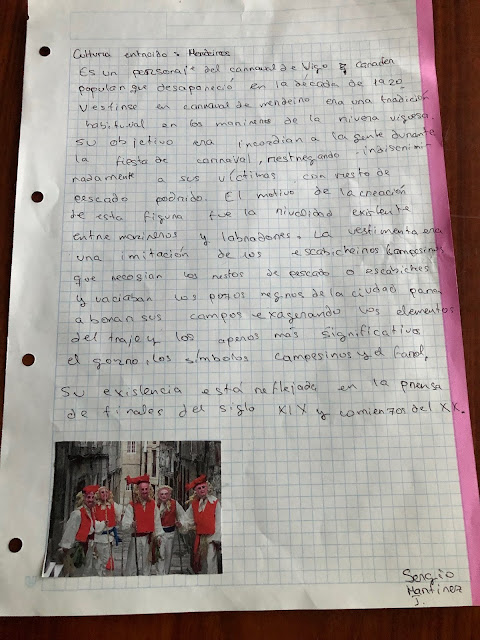 Cultura entroido: Merdeiros
Es un personaje del carnaval de Vigo de carácter
popular que desapareció en la década de 1920
Vestirse en carnaval de merdeiro era una tradición
habitual en los marineros de la rivera viguesa.
su objetivo era incordian a la gente durante
la fiesta de carnaval, restregando indiscrimi-
nadamente a sus víctimas con resto de
pescado podrido. El motivo de la creación
de esta figura fue la rivalidad existente
entre marineros y labradores. La vestimenta era
una imitación de los escabicheiros (campesinos
que recogian los restos de pescado o escabiches)
y vaciaban los pozos negros de la ciudad para
abonar sus campos exagerando los elementos
del traje y los aperos más significativos
el gorro, los símbolos campesinos y el farol.
Su existencia está reflejada en la prensa
de finales del siglo XIX y comienzos del XX.
Sergio
Martinez
J.